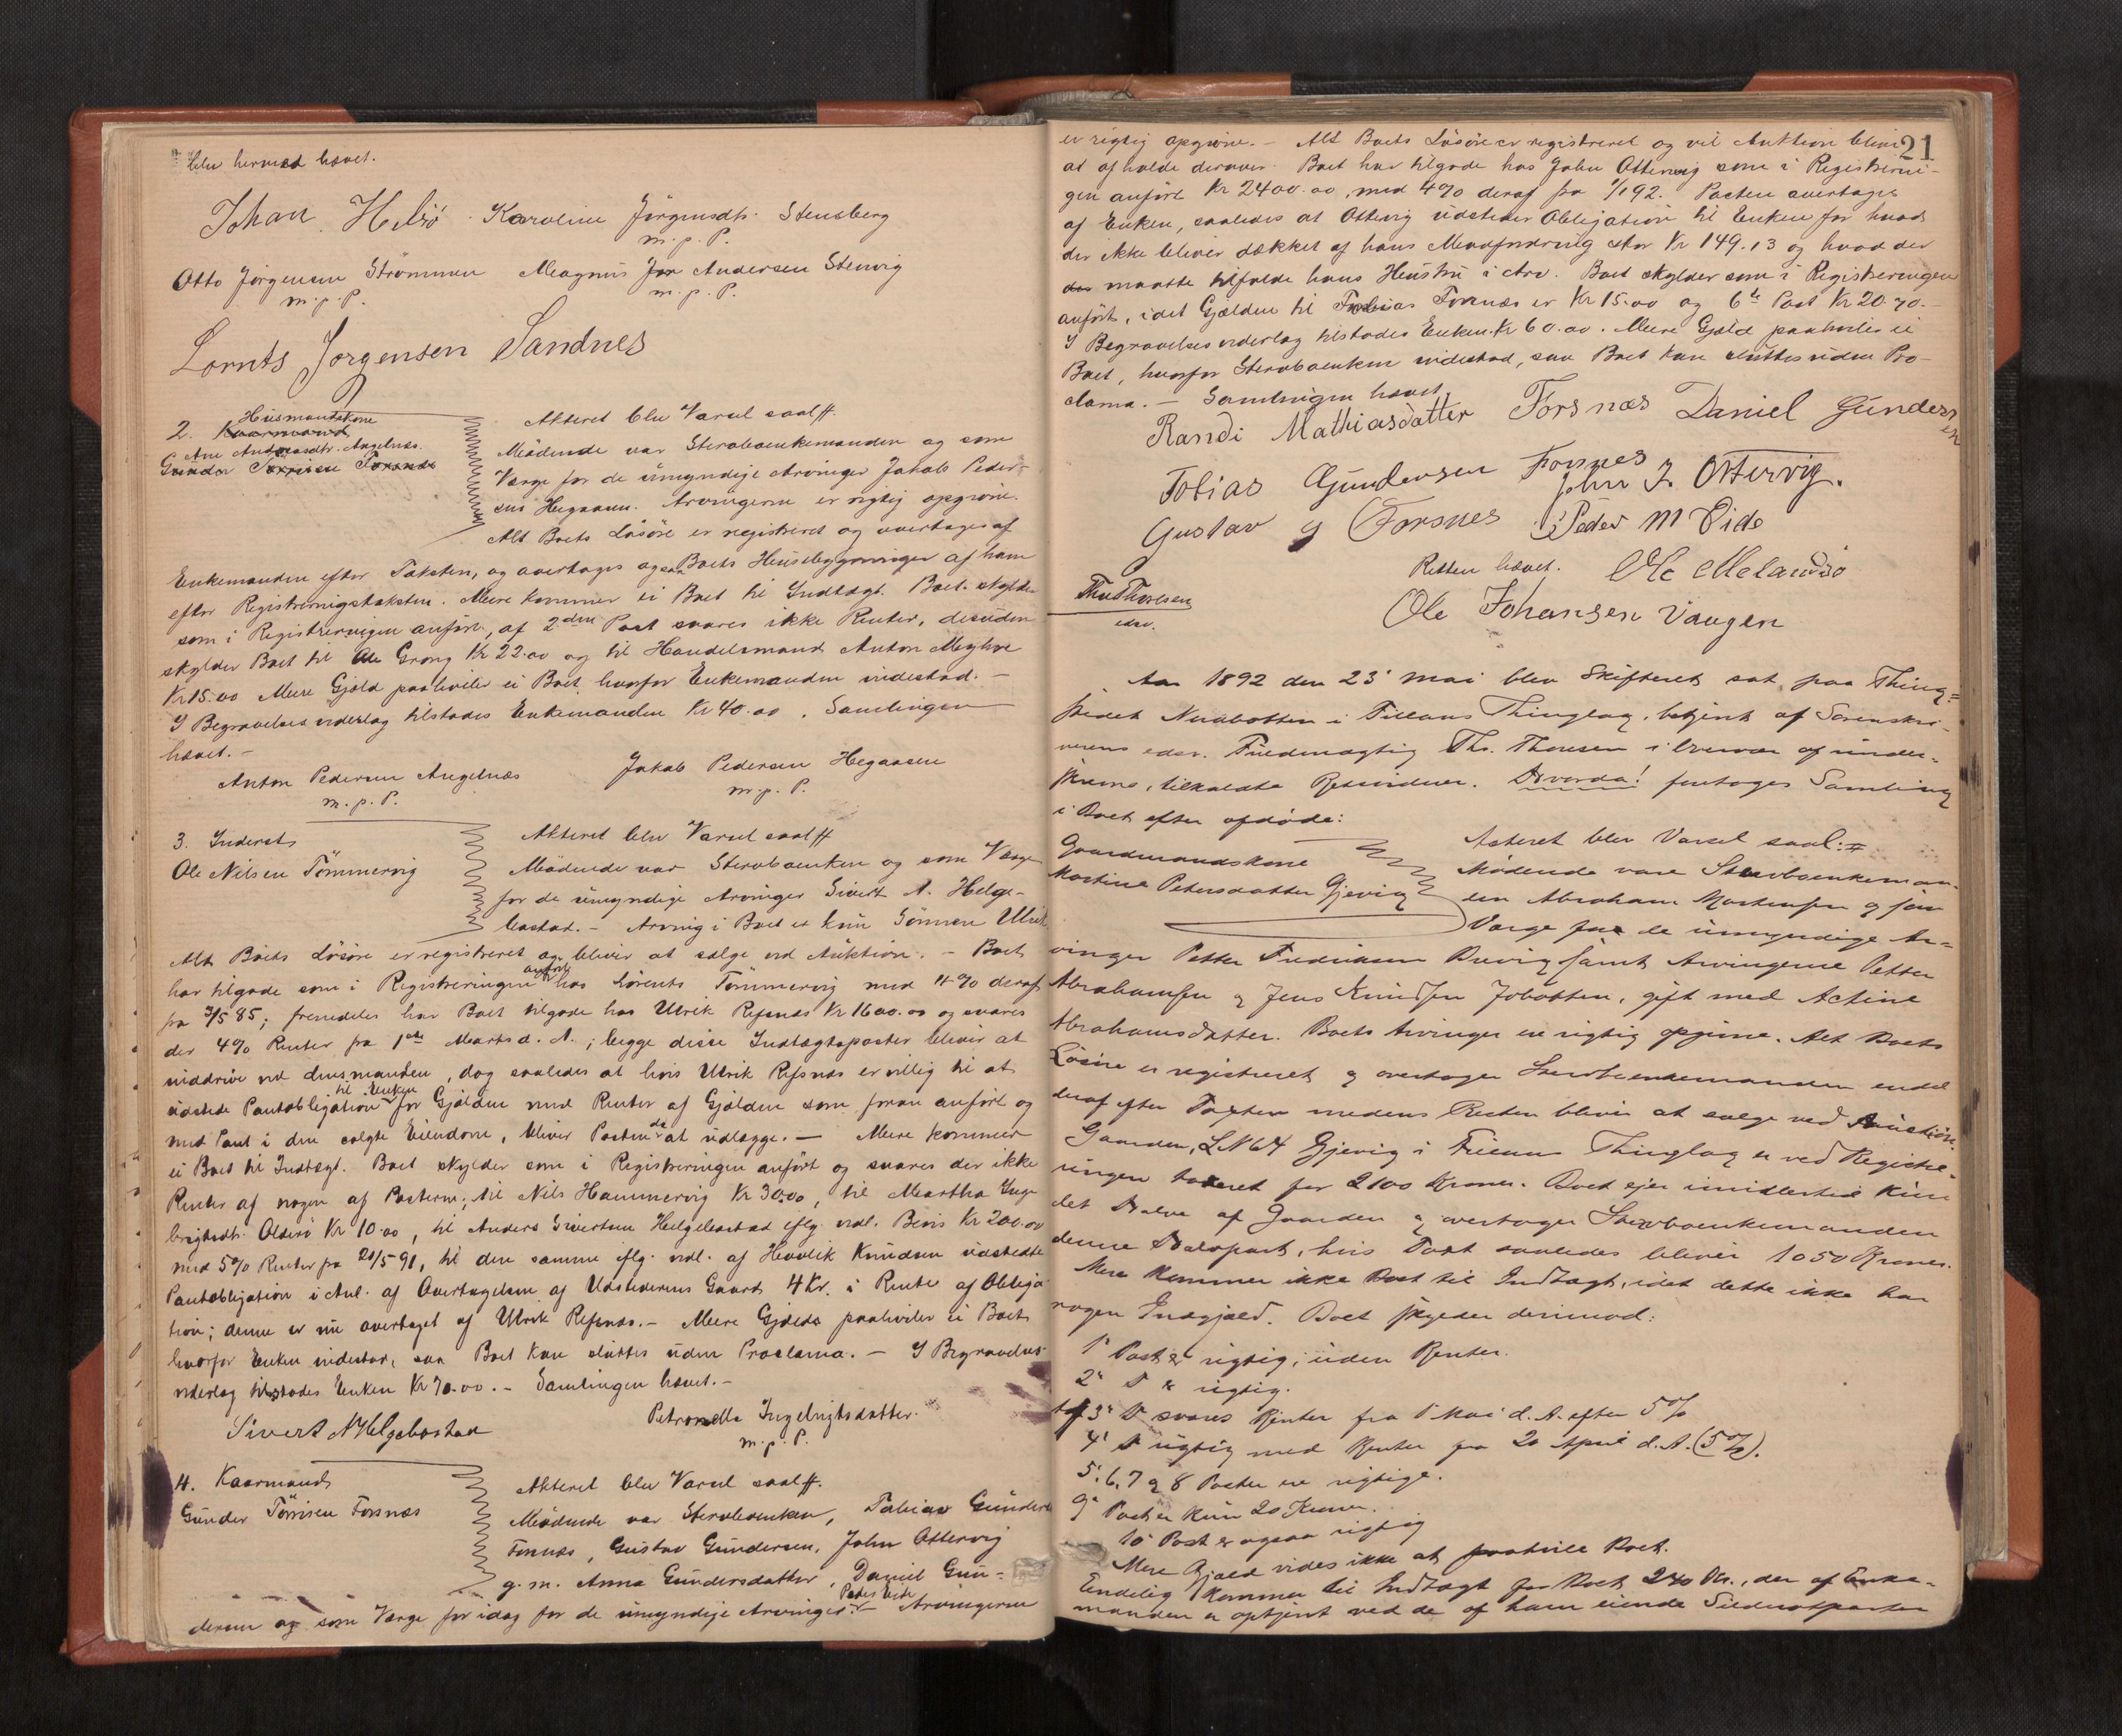 blev hermed hævet.
Johan Helsö. Karoline Jörgensdtr. Stensberg
m.p.P.
Otto Jörgensen Strömmen Magnus Jon Andersen Stenvig
m.p.P. m.p.P.
Lornts Jörgensen Sandnes
Husmandskone
2. Kaarmand
Ane Andreasdtr. Angelnæs.
Gunder Törrisen Forsnæs
Akteret blev Varsel saal#.
Mödende var Stervboenkemanden og som
Værge for de umyndige Arvinger Jakob Peder-
sen Hegaasen. Arvingerne er rigtig opgivne.
Alt Boets Lösöre er registreret og overtages af
Enkemanden efter Taksten, og overtages ogsaa Boets Husebygninger af ham
efter Registreringstaksten. Mere kommer ei Boet til Indtægt. Boet skylder
som i Registreringen anfört, af 2den Post svares ikke Renter, desuden
skylder Boet til Ole Grong Kr 22.00 og til Handelsmand Anton
Kr 15.00 Mere Gjæld paahviler ei Boet, hvorfor Enkemanden indestod. -
I Begravelsesvederlag tilstodes Enkemanden Kr 40.00. Samlingen
hævet. -
Anton Pedersen Angelnæs Jakob Pedersen Hegaasen
m.p.P. m.p.P.
3. Inderst
Ole Nilsen Tömmervig
Akteret blev Varsel saal#
Mödende var Stervboenken og som Værge
for de umyndige Arvinger Sivert N. Helge-
bostad. - Arving i Boet er kun Sönnen Ulrik
Alt Boets Lösöre er registreret og bliver at sælge ved Auktion. - Boet
har tilgode som i Registreringen anfört hos Lörents Tömmervig med 4% deraf
fra 3/5 85; fremdeles har Boet tilgode hos Ulrik Refsnæs Kr 1600.00 og svares
der 4% Renter fra 1ste Marts d. A.; begge disse Indtægtsposter bliver at
inddrive ved Lensmanden, dog saaledes at hvis Ulrik Refsnæs er villig til at
udstede Pantobligation til Enken for Gjælden med Renter af Gjælden som foran anfört og
med Pant i den solgte Eiendom, bliver Posten da at udlægge. - Mere kommer
ei Boet til Indtægt. Boet skylder som i Registreringen anfört og svares der ikke
Renter af nogen af Posterne; til Nils Hammervig Kr 30.00, til Martha Inge-
brigtsdtr. Olderö Kr 10.00, til Anders Sivertsen Helgebostad iflg. vedl. Bevis Kr 200.00
med 5% Renter fra 21/5 91, til den samme iflg. vedl. af Hovlik Knudsen udstedte
Pantobligation i Anl. af Overtagelsen af Udstederens Gaard 4 Kr. i Rente af Obliga-
tion; denne er nu overtaget af Ulrik Refsnæs. - Mere Gjæld paahviler ei Boet
hvorfor Enken indestod, saa Boet kan sluttes uden Proclama. - I Begravelses-
vederlag tilstodes Enken Kr 70.00. - Samlingen hævet. -
Sivert N Helgebostad Petronella Ingebrigtsdatter.
m.p.P.
4. Kaarmand
Gunder Törrisen Forsnæs
Akteret blev Varsel saal#.
Mödende var Stervboenken, Tobias Gundersen
Forsnæs, Gustav Gundersen, John Ottervig
g. m. Anna Gundersdatter, Daniel Gun-
dersen og som Værge for idag for de umyndige Arvinger Peder Eide - Arvingerne
21
er rigtig opgivne. - Alt Boets Lösöre er registreret og vil Auktion blive
at afholde derover. Boet har tilgode hos John Ottervig som i Registrerin-
gen anfört Kr 2400.00, med 4% deraf fra 1/1 92. Posten overtages
af Enken, saaledes at Ottervig udsteder Obligation til Enken for hvad
der ikke bliver dækket af hans Modfordring stor Kr 149.13 og hvad der
der maatte tilfalde hans Hustru i Arv. Boet skylder som i Registreringen
anfört, idet Gjælden til Tobias Forsnæs er Kr 15.00 og 6te Post Kr 20.70. -
I Begravelsesvederlag tilstodes Enken Kr 60.00. Mere Gjæld paahviler ei
Boet, hvorfor Stervboenken indestod, saa Boet kan sluttes uden Pro-
clama. - Samlingen hævet
Randi Mathiasdatter Forsnæs Daniel Gundersen
Tobias Gundersen Forsnes John J. Ottervig.
Gustav G Forsnes Peder M Eide
Retten hævet. Ole Melandsö
Ths Thoresen Ole Johansen Vaagen
edsv.
Aar 1892 den 23' Mai blev Skifteret sat paa Thing=
stedet Nordbotten i Fillans Thinglag, betjent af Sorenskri-
verens edsv. Fuldmægtig Ths. Thoresen i Overvær af under-
skrevne, tilkaldte Retsvidner. Hvorda! foretoges Samling
i Boet efter afdøde:
Gaardmandskone
Martine Petersdatter Gjevig
Acteret blev Varsel saal:#
Mødende vare Stervboenkeman-
den Abraham Mortensen og som
Værge for de umyndige Ar-
vinger Petter Fredriksen samt Arvingerne Petter
Abrahamsen og Jens Knudsen Jobotten, gift med Actine
Abrahamsdatter. Boets Arvinger ere rigtig opgivne. Alt Boets
Løsøre er registreret og overtager Stervboenkemanden endel
deraf efter Taxten medens Resten bliver at sælge ved Auction.
Gaarden, LN 64 Gjevig i Fillans Thinglag er ved Registre-
ringen taxeret for 2100 Kroner. Boet ejer imidlertid kun
det Halve af Gaarden og overtager Stervboenkemanden
denne Halvpart, hvis Taxt saaledes bliver 1050 Kroner.
Mere kommer ikke Boet til Indtægt, idet dette ikke har
nogen Indgjæld. Boet skylder derimod:
1' Post er rigtig, uden Renter.
2' D er rigtig.
3' D svares Renter fra 1 Mai d. A. efter 5%
4' D rigtig med Renter fra 20 April d. A. (5%).
5', 6, 7 og 8 Poster ere rigtige.
9' Post er kun 20 Kroner.
10' Post er ogsaa rigtig
Mere Gjæld vides ikke at paahvile Boet.
Endelig kommer til Indtægt for Boet 240 Kr., der af Enke-
manden er optjent ved de af ham eiende Sildenotparter